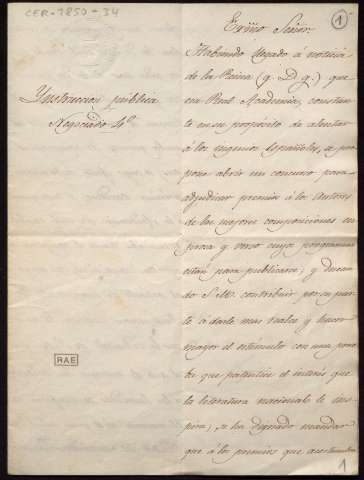 CER-1850-34
1
Exmo Señor:
Instruccion pública
Negociado 4º
Habiendo llegado á noticia
de la Reina (q. D. g.) que
esa Real Academia, constan
te en su propósito de alentar
á los ingenios Españoles, se pro
pone abrir un concurso para
adjudicar premios á los Autores
de las mejores composiciones en
prosa y verso cuyos programas
estan para publicarse; y desean
do S. M. contribuir por su par
te á darle mas realce y hacer
mayor el estímulo con una prue
ba que patentice el interés que
la literatura nacional le ins
pira; se ha dignado mandar
que á los premios que acostumbra
RAE
1